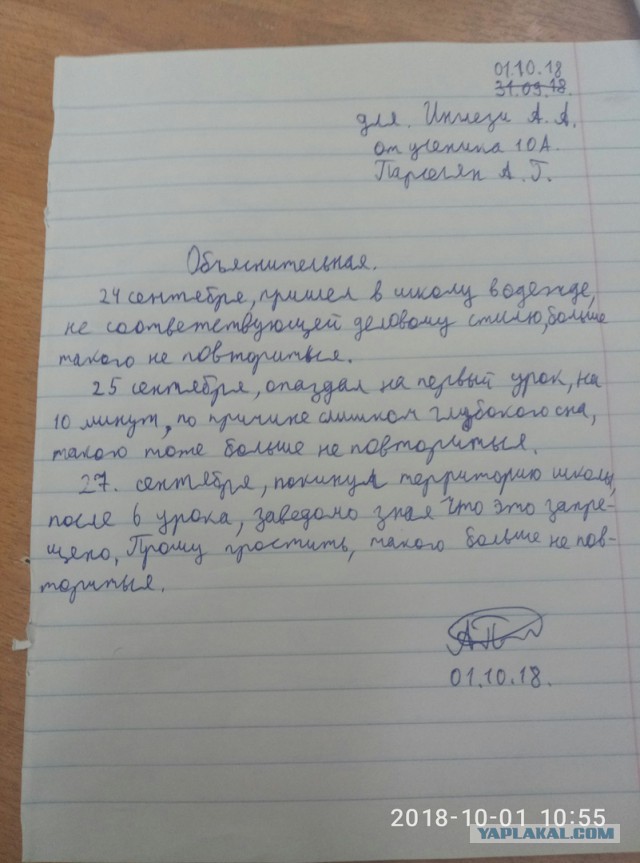 01.10.18
31.09.18.
для. Инлези А. А.
от ученика 10А.
Парсегян А. Г.
Объяснительная.
24 сентября, пришел в школу в одежде,
не соответствующей деловому стилю, больше
такого не повториться.
25 сентября, опаздал на первый урок, на
10 минут, по причине слишком глубокого сна,
такого тоже больше не повториться.
27. сентября, покинул территорию школы,
после 6 урока, заведомо зная что это запре-
щено, Прошу простить, такого больше не пов-
ториться.
АП
01.10.18.
2018-10-01 10:55
YAPLAKAL.COM